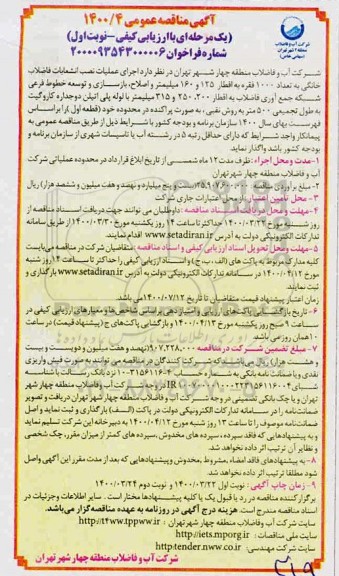 آگهی مناقصه عمومی ۱۴۰۰/۴
(یک مرحله‌ای با ارزیابی کیفی - نوبت اول)
شماره فراخوان ۲۰۰۰۰۹۳۵۴۳۰۰۰۰۰۶
شرکت آب و فاضلاب
منطقه ۴ شهر تهران
(سهامی خاص)
شرکت آب و فاضلاب منطقه چهار شهر تهران در نظر دارد اجرای عملیات نصب انشعابات فاضلاب
خانگی به تعداد ۱۰۰۰ فقره به اقطار ۱۲۵ و ۱۶۰ میلیمتر و اصلاح، بازسازی و توسعه خطوط فرعی
شبکه جمع آوری فاضلاب به اقطار ۲۰۰، ۲۵۰ و ۳۱۵ میلیمتر با لوله پلی اتیلن دوجداره کاروگیت
به طول تجمیعی ۵۰۰ متر به روش نقبی، به صورت پراکنده در محدوده خود (قطعه اول) را براساس
فهرست بهای سال ۱۴۰۰ سازمان برنامه و بودجه کشور با شرایط ذیل از طریق مناقصه عمومی به
پیمانکار واجد شرایط که دارای حداقل رتبه ۵ در رشته آب یا تاسیسات شهری از سازمان برنامه و
بودجه کشور باشد واگذار نماید.
۱- مدت و محل اجراء: ظرف مدت ۱۲ ماه شمسی از تاریخ ابلاغ قرارداد در محدوده عملیاتی شرکت
آب و فاضلاب منطقه چهار شهر تهران
۲- مبلغ برآوردی مناقصه
۳- محل تامین اعتبار: از محل اعتبارات جاری شرکت
۴- مهلت و محل دریافت اسناد مناقصه: داوطلبان می توانند جهت دریافت اسناد مناقصه از
روز شنبه مورخ ۱۴۰۰/۰۳/۲۲ حداکثر تا ساعت ۱۴ روز یکشنبه مورخ ۱۴۰۰/۰۳/۳۰ از طریق سامانه
تدارکات الکترونیکی دولت به آدرس www.setadiran.ir اقدام نمایند.
۵- مهلت و محل تحویل اسناد ارزیابی کیفی و اسناد مناقصه: متقاضیان شرکت در مناقصه می‌بایست
کلیه مدارک مربوط به پاکت های (الف، ب، ج) و اسناد ارزیابی کیفی را حداکثر تا ساعت ۱۴ روز شنبه
مورخ ۱۴۰۰/۰۴/۱۲ در سامانه تدارکات الکترونیکی دولت به آدرس www.setadiran.ir بارگذاری و
ثبت نمایند.
زمان اعتبار پیشنهاد قیمت متقاضیان تا تاریخ ۱۴۰۰/۰۷/۱۲ می باشد.
۶- تاریخ بازگشایی پاکت‌های ارزیابی و امتیازدهی براساس شاخص ها و معیارهای ارزیابی کیفی در
ساعت ۹ صبح روز یکشنبه مورخ ۱۴۰۰/۰۴/۱۳ و بازگشایی پاکت‌های ج (پیشنهاد قیمت) در ساعت
۱۰ همان روز می باشد.
۷- مبلغ تضمین شرکت در مناقصه
و هشت هزار) ریال می باشد که شرکت کنندگان در مناقصه می توانند به صورت فیش واریزی
تهران و یا چک بانکی تضمینی در وجه شرکت آب و فاضلاب منطقه چهار شهر تهران دریافت و تصویر
ضمانت‌نامه را در سامانه تدارکات الکترونیکی دولت در پاکت (الف) بارگذاری و ثبت نماید و اصل
ضمانت‌نامه موصوف را تا ساعت ۱۳ روز شنبه مورخ ۱۴۰۰/۰۴/۱۲ به دبیرخانه این شرکت تسلیم نماید
و به پیشنهادهایی که فاقد سپرده، سپرده های مخدوش، سپرده های کمتر از میزان مقرر، چک شخصی
و نظایر آن ترتیب اثر داده نخواهد شد.
۸- به پیشنهادهای فاقد امضاء، مشروط، مخدوش و پیشنهادهایی که بعد از مدت مقرر این آگهی واصل
شود مطلقا ترتیب اثر داده نخواهد شد.
۹- زمان چاپ آگهی: نوبت اول ۱۴۰۰/۰۳/۲۲ و نوبت دوم ۱۴۰۰/۰۳/۲۴
برگزار کننده مناقصه در رد یا قبول یک یا کلیه پیشنهادها مختار است. سایر اطلاعات و جزئیات در
اسناد مناقصه مندرج است. هزینه درج آگهی در روزنامه به عهده مناقصه گزار می باشد.
سایت شرکت آب و فاضلاب منطقه چهار شهر تهران: http://t4ww.tppww.ir
سایت ملی مناقصات: http://iets.mporg.ir
سایت شرکت مهندسی: http://tender.nww.co.ir
شرکت آب و فاضلاب منطقه چهار شهر تهران